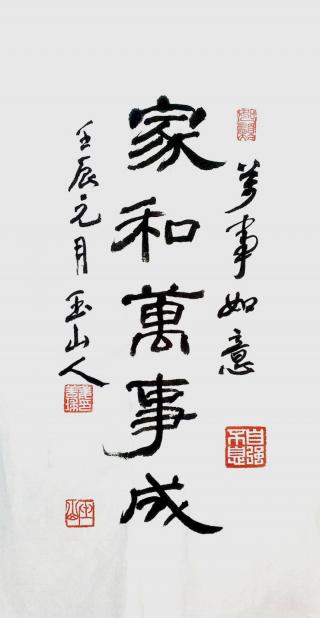 萬事如意
自強不息
家和萬事成
壬辰元月玉山人